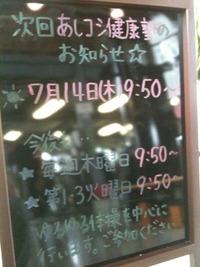 次回あしコシ健康塾の
お知らせ☆
7月14日(木)9:50~
今後…
★毎週木曜日9:50~
★第1・3火曜日9:50~
ゆるゆる体操を中心に
行います。ご参加ください